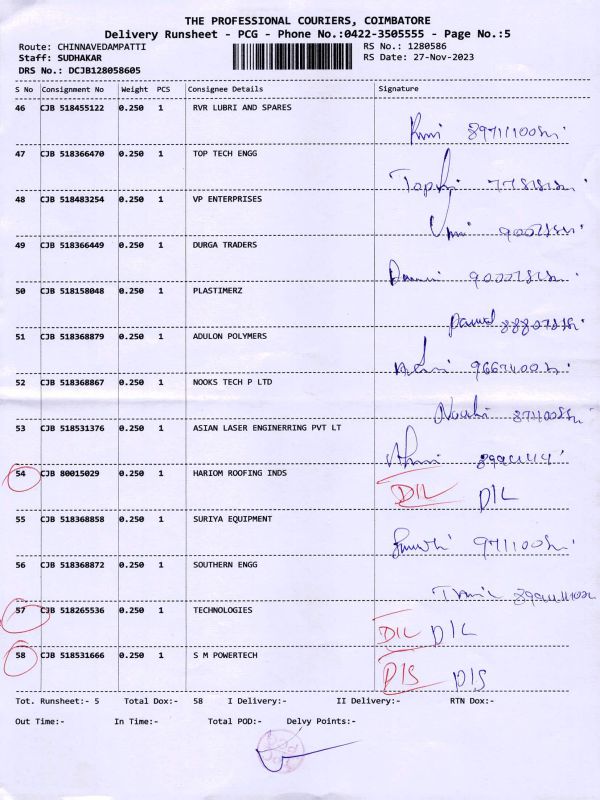 THE PROFESSIONAL COURIERS, COIMBATORE
Delivery Runsheet - PCG - Phone No.:0422-3505555 - Page No.:5
Route: CHINNAVEDAMPATTI RS No.: 1280586
Staff: SUDHAKAR RS Date: 27-Nov-2023
DRS No.: DCJB128058605
S No Consignment No Weight PCS Consignee Details Signature
46 CJB 518455122 0.250 1 RVR LUBRI AND SPARES
47 CJB 518366470 0.250 1 TOP TECH ENGG
48 CJB 518483254 0.250 1 VP ENTERPRISES
49 CJB 518366449 0.250 1 DURGA TRADERS
50 CJB 518158048 0.250 1 PLASTIMERZ
51 CJB 518368879 0.250 1 ADULON POLYMERS
52 CJB 518368867 0.250 1 NOOKS TECH P LTD
53 CJB 518531376 0.250 1 ASIAN LASER ENGINERRING PVT LT
54 CJB 80015029 0.250 1 HARIOM ROOFING INDS
D/L D/L
55 CJB 518368858 0.250 1 SURIYA EQUIPMENT
56 CJB 518368872 0.250 1 SOUTHERN ENGG
57 CJB 518265536 0.250 1 TECHNOLOGIES
D/L D/L
58 CJB 518531666 0.250 1 S M POWERTECH
D/S D/S
Tot. Runsheet:- 5 Total Dox:- 58 I Delivery:- II Delivery:- RTN Dox:-
Out Time:- In Time:- Total POD:- Delvy Points:-